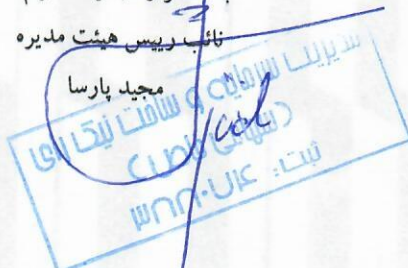 نائب رییس هیئت مدیره
مجید پارسا
مدیریت سرمایه و ساخت نیک رای
(سهامی خاص)
ثبت: